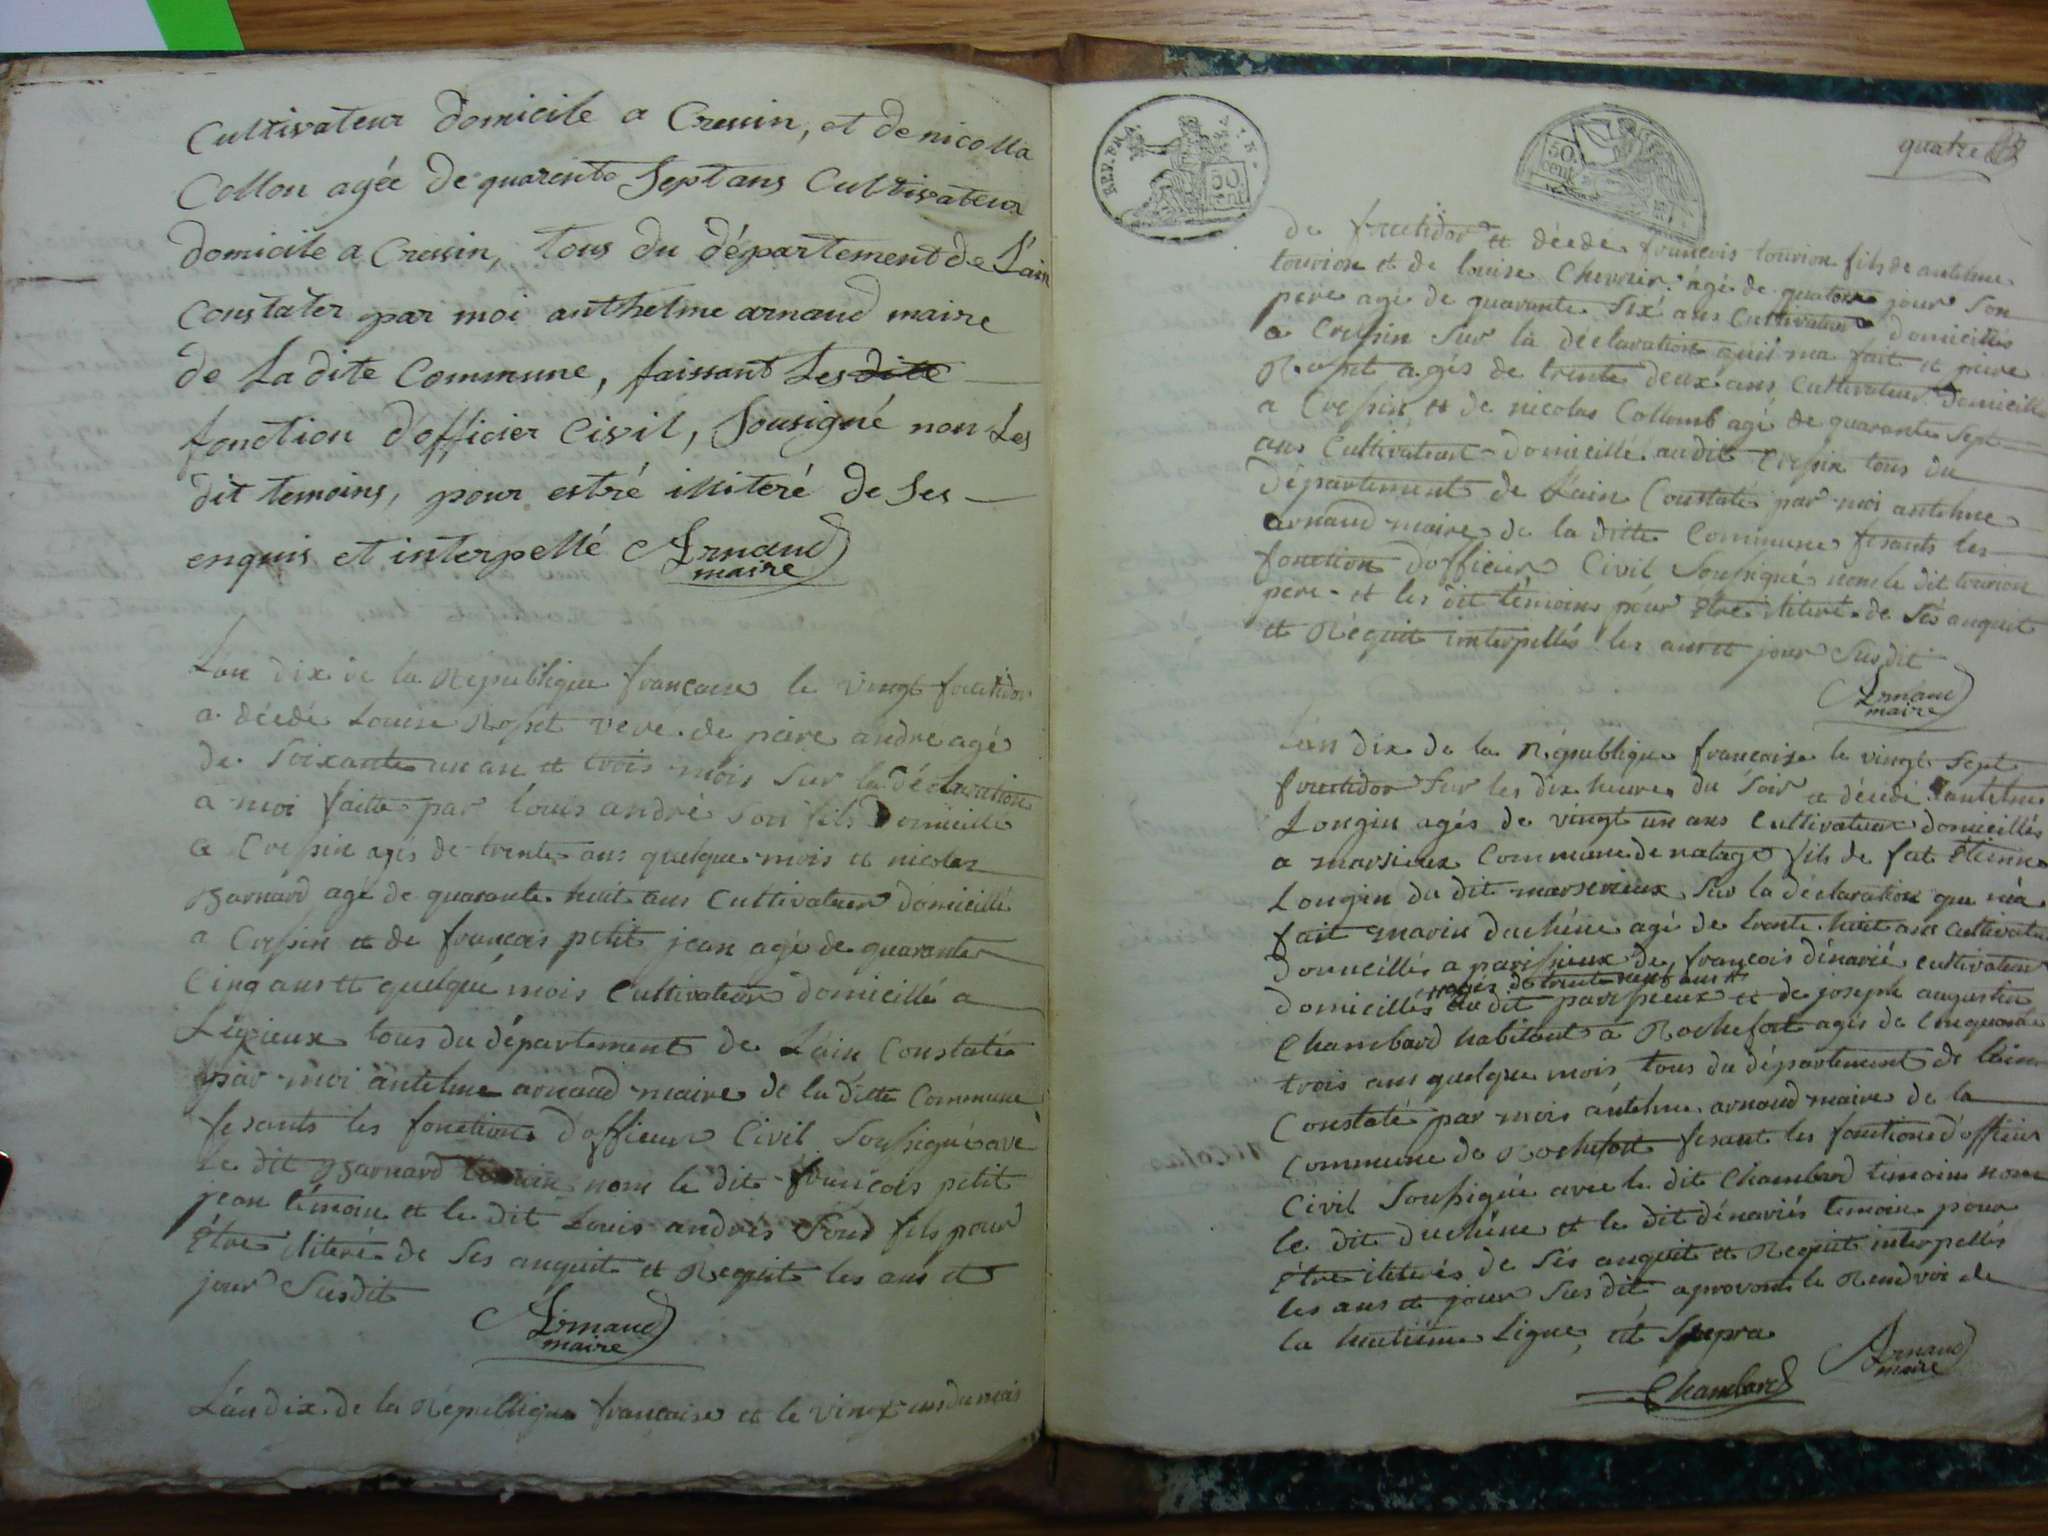 Cultivateur domicile a Cressin, et de nicolla
Collon agée de quarente Sept ans Cultivateur
domicile a Cressin, tous du département de L'ain
constater par moi anthelme arnaud maire
de Ladite Commune, faissant Les ditte
fonction dofficier Civil, Sousigné non Les
dit temoins, pour estré illiteré de Ses
enquis et interpellé Arnaud
maire
Lan dix de la République francaise le vingt fructidor
a décédé Louise Rosset veve de peire andre agé
de soixante un an et trois mois Sur la déclaration
a moi faitte par louis andré son fils Domicillié
a Cressin agés de trente ans quelque mois et nicolas
Barnard agé de quarante huit ans Cultivateur domicillié
a Cressin et de francois petit jean agé de quarante
Cinq ans et quelqué mois Cultivateur domicillé a
tous du département de Lain Constaté
par moi antelme arnaud maire de la ditte Commune
fesants les fonctions dofficier Civil Soussigné ave
le dit Barnard nom le dit francois petit
jean témoin et le dit Louis andrés Sond fils pour
étre iliteré de Ses anquit et Requit les ans et
jour Susdit
Arnaud
maire
Lan dix de la République francaise et le vingt un du mois
quatre
REP. FRA.
50
cent
50
cent
de fructidor et décédé francois tourion fils de antelme
tourion et de louise Chervier agé de quatorze jour Son
pere agé de quarante Six ans Cultivateur domicillés
a Cressin Sur la déclaration quil ma fait et peire
Rosset agés de trente deux ans Cultivateur domicillé
a Cressin et de nicolas Collomb agé de quarante Sept
ans Cultivateur domicillé audit Cressin tous du
département de Lain Constaté par moi antelme
arnaud maire de la ditte Commune fesants les
fonction dofficier Civil Soussigné nom le dit tourion
pere et les dit témoins pour étre iliteré de Sés anquit
et Réquit interpellés les ans et jour Susdit
Arnaud
maire
Lan dix de la République francaise le vingt Sept
fructidor Sur les dix heures du Soir et décédé antelme
Longin agés de vingt un ans Cultivateur domicillés
a marsieux Commune de natage fils de feat Étienne
Longin du dit Sur la déclaration que má
fait marin duchéne agé de trente huit ans Cultivateur
domicillés a parissieux de francois dénarié cultivateur
agés de trente neuf ans
domicillés du dit parissieux et de joseph augustin
Chambard habitant a Rochefort agés de Cinquante
trois ans quelque mois tous du département de lain
Constaté par mois antelme arnaud maire de la
Commune de Rochefort fesant les fonctions dofficier
Civil Soussigné avec le dit Chambard témoin nom
le dit duchéne et le dit dénariés temoin pour
étre iliterés de Sés anquit et Requit interpellés
les ans et jour Sus dit aprovant le Rendvoi de
la huitiéme Ligne, ut Supra
Arnaud
maire
Chambard